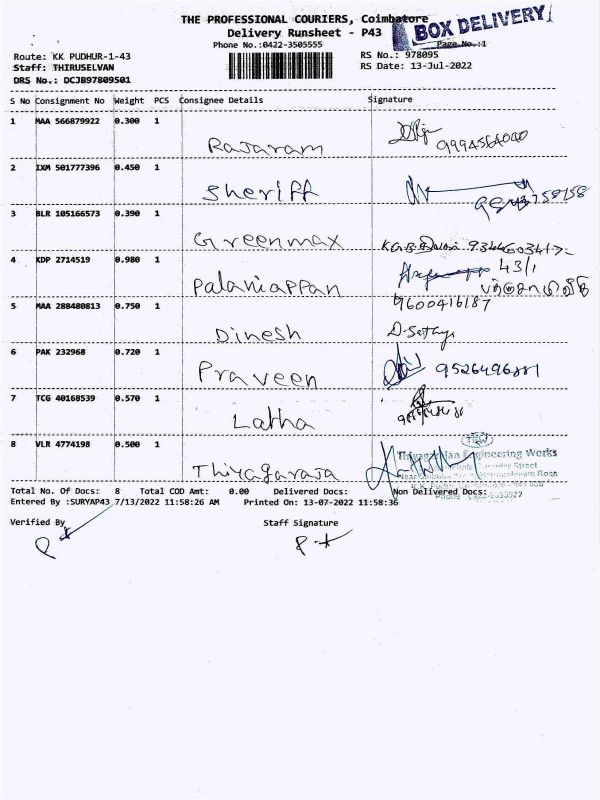 THE PROFESSIONAL COURIERS, Coimbatore
BOX DELIVERY
Delivery Runsheet - P43
Phone No.:0422-3505555
Page No.:1
Route: KK PUDHUR-1-43
RS No.: 978095
Staff: THIRUSELVAN
RS Date: 13-Jul-2022
DRS No.: DCJB97809501
S No Consignment No Weight PCS Consignee Details Signature
1 MAA 566879922 0.300 1 Rajaram
2 IXM 501777396 0.450 1 Sheriff
3 BLR 105166573 0.390 1 Greenmax
4 KDP 2714519 0.980 1 Palaniappan 43/1
9600416187
5 MAA 288480813 0.750 1 Dinesh D-Sathya
6 PAK 232968 0.720 1 Praveen
7 TCG 40168539 0.570 1 Latha
8 VLR 4774198 0.500 1 Thiyagaraja
TEW
Engineering Works
Street
Total No. Of Docs: 8 Total COD Amt: 0.00 Delivered Docs: Non Delivered Docs:
Entered By :SURYAP43 7/13/2022 11:58:26 AM Printed On: 13-07-2022 11:58:36
Verified By Staff Signature